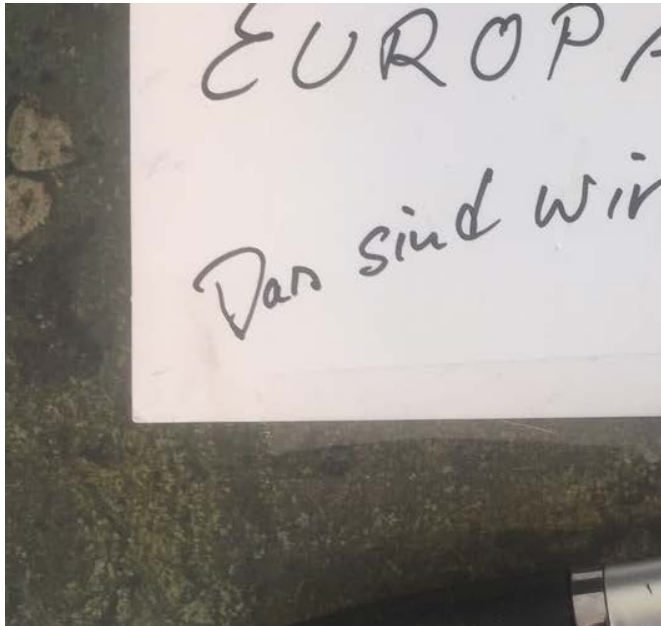 EUROPA
Das sind wir